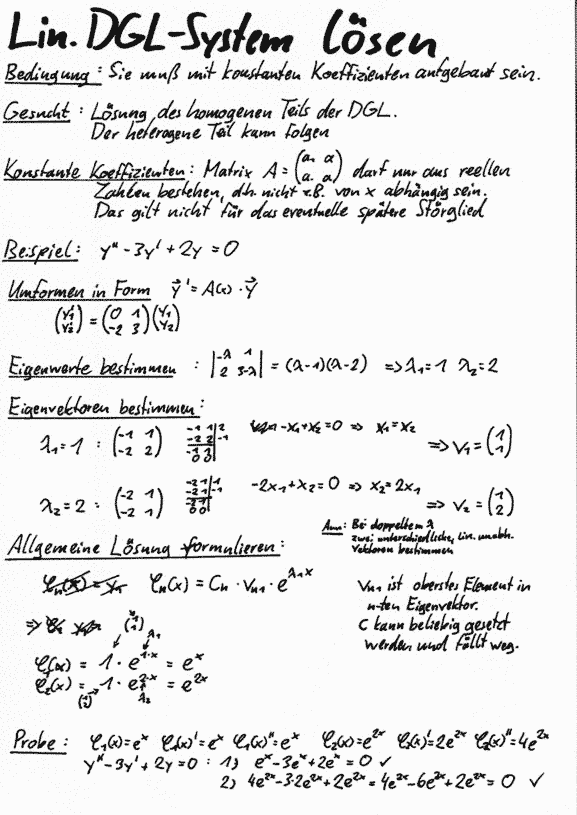 Lin. DGL-System lösen
Bedingung: Sie muß mit konstanten Koeffizienten aufgebaut sein.
Gesucht: Lösung des homogenen Teils der DGL.
Der heterogene Teil kann folgen
Konstante Koeffizienten: Matrix A = (a. a / a. a) darf nur aus reellen
Zahlen bestehen, d.h. nicht z.B. von x abhängig sein.
Das gilt nicht für das eventuelle spätere Störglied
Beispiel: y'' - 3y' + 2y = 0
Umformen in Form y⃗' = A(x) · y⃗
(y₁' / y₂') = (0 1 / -2 3)(y₁ / y₂)
Eigenwerte bestimmen: |-λ 1 / 2 3-λ| = (λ-1)(λ-2) ⇒ λ₁=1 λ₂=2
Eigenvektoren bestimmen:
λ₁=1 : (-1 1 / -2 2) -x₁+x₂=0 ⇒ x₁=x₂ ⇒ v₁ = (1 / 1)
λ₂=2 : (-2 1 / -2 1) -2x₁+x₂=0 ⇒ x₂=2x₁ ⇒ v₂ = (1 / 2)
Anm: Bei doppeltem λ
zwei unterschiedliche, lin. unabh.
Vektoren bestimmen
Allgemeine Lösung formulieren:
φₙ(x) = Cₙ · vₙ₁ · e^(λ₁x)
vₙ₁ ist oberstes Element in
n-ten Eigenvektor.
C kann beliebig gesetzt
werden und fällt weg.
φ₁(x) = 1 · e^(1·x) = e^x
φ₂(x) = 1 · e^(2·x) = e^(2x)
Probe: φ₁(x)=e^x φ₁(x)'=e^x φ₁(x)''=e^x φ₂(x)=e^(2x) φ₂(x)'=2e^(2x) φ₂(x)''=4e^(2x)
y''-3y'+2y=0 : 1) e^x-3e^x+2e^x=0 ✓
2) 4e^(2x)-3·2e^(2x)+2e^(2x)=4e^(2x)-6e^(2x)+2e^(2x)=0 ✓